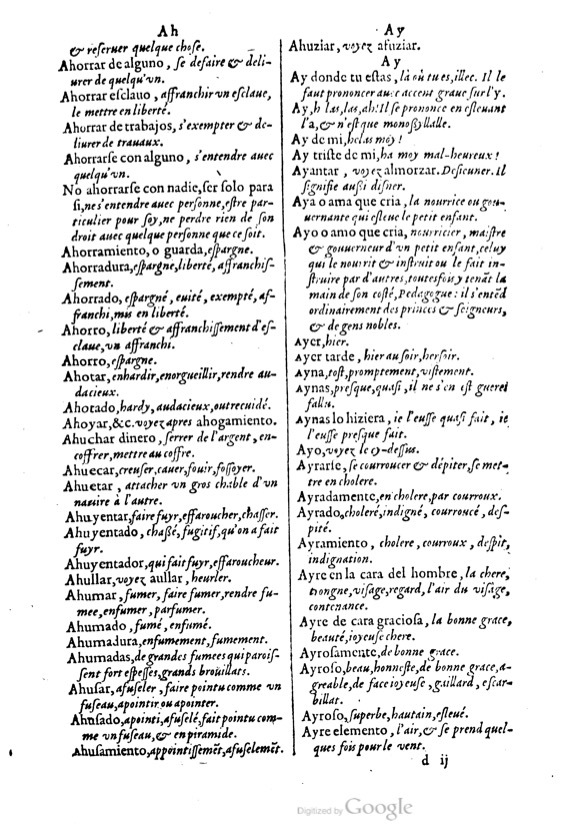 Ah
& reseruer quelque chose.
Ahorrar de alguno, se desaire & deli-
urer de quelqu'vn.
Ahorrar esclauo, affranchir vn esclaue,
le mettre en liberté.
Ahorrar de trabajos, s'exempter & de-
liurer de trauaux.
Ahorrarse con alguno, s'entendre auec
quelqu'vn.
No ahorrarse con nadie, ser solo para
si, ne s'entendre auec personne, estre par-
ticulier pour soy, ne perdre rien de son
droit auec quelque personne que ce soit.
Ahorramiento, o guarda, espargne.
Ahorradura, espargne, liberté, affranchis-
sement.
Ahorrado, espargné, euité, exempté, af-
franchi, mis en liberté.
Ahorro, liberté & affranchissement d'es-
claue, vn affranchi.
Ahorro, espargne.
Ahotar, enhardir, enorgueillir, rendre au-
dacieux.
Ahotado, hardy, audacieux, outrecuidé.
Ahoyar, &c. voyez apres ahogamiento.
Ahuchar dinero, serrer de l'argent, en-
coffrer, mettre au coffre.
Ahuecar, creuser, cauer, fouir, fossoyer.
Ahuetar, attacher vn gros chable d'vn
nauire à l'autre.
Ahuyentar, faire fuyr, effaroucher, chasser.
Ahuyentado, chassé, fugitif, qu'on a fait
fuyr.
Ahuyentador, qui fait fuyr, effaroucheur.
Ahullar, voyez aullar, heurler.
Ahumar, fumer, faire fumer, rendre fu-
mee, enfumer, parfumer.
Ahumado, fumé, enfumé.
Ahumadura, enfumement, fumement.
Ahumadas, de grandes fumees qui parois-
sent fort espesses, grands brouillats.
Ahusar, afuseler, faire pointu comme vn
fuseau, apointir ou apointer.
Ahusado, apointi, afuselé, fait pointu com-
me vn fuseau, & en piramide.
Ahusamiento, appointissemẽt, afuselemẽt.
Ay
Ahuziar, voyez afuziar.
Ay
Ay donde tu estas, là où tu es, illec. Il le
faut prononcer auec accent graue sur l'y.
Ay, h las, las, ah! Il se prononce en esleuant
l'a, & n'est que monosyllalle.
Ay de mi, helas moy!
Ay triste de mi, ha moy mal-heureux!
Ayantar, voyez almorzar. Desieuner. Il
signifie aussi disner.
Aya o ama que cria, la nourrice ou gou-
uernante qui esleue le petit enfant.
Ayo o amo que cria, nourricier, maistre
& gouuerneur d'vn petit enfant, celuy
qui le nourit & instruit ou le fait in-
struire par d'autres, toutesfois y tenãt la
main de son costé, Pedagogue: il s'entẽd
ordinairement des princes & seigneurs,
& de gens nobles.
Ayer, hier.
Ayer tarde, hier au soir, hersoir.
Ayna, tost, promptement, vistement.
Aynas, presque, quasi, il ne s'en est guerei
fallu.
Aynas lo hiziera, ie l'eusse quasi fait, ie
l'eusse presque fait.
Ayo, voyez le cy-dessus.
Ayrarse, se courroucer & dépiter, se met-
tre en cholere.
Ayradamente, en cholere, par courroux.
Ayrado, choleré, indigné, courroucé, des-
pité.
Ayramiento, cholere, courroux, despit,
indignation.
Ayre en la cara del hombre, la chere,
trongne, visage, regard, l'air du visage,
contenance.
Ayre de cara graciosa, la bonne grace,
beauté, ioyeuse chere.
Ayrosamente, de bonne grace.
Ayroso, beau, honneste, de bonne grace, a-
greable, de face ioyeuse, gaillard, escar-
billat.
Ayroso, superbe, hautain, esleué.
Ayre elemento, l'air, & se prend quel-
ques fois pour le vent.
d ij
Digitized by Google